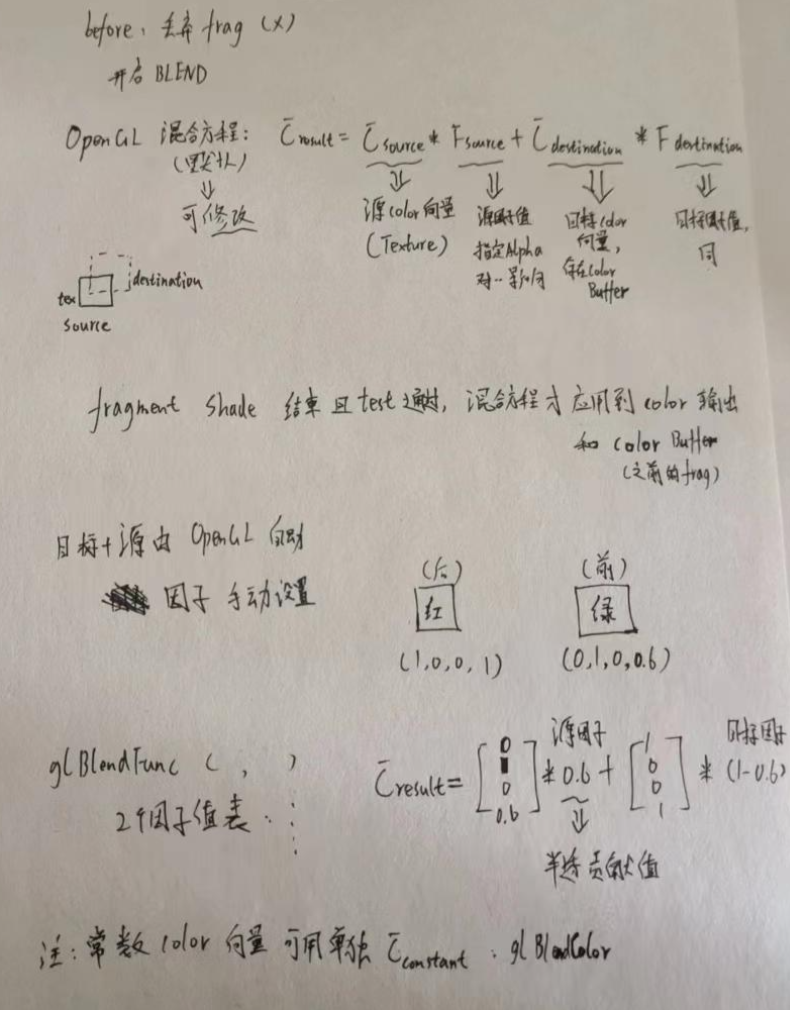 before: 丢弃 frag (x)
开启 BLEND
OpenGL 混合方程: C̄result = C̄source * Fsource + C̄destination * Fdestination
(默认)
可修改
源color向量
(Texture)
源因子值
指定Alpha
对
目标color
向量,
存在color
Buffer
目标因子值,
同
tex
destination
source
fragment shade 结束且test通过, 混合方程才应用到 color 输出
和 color Buffer
(之前的frag)
目标+源由 OpenGL 自动
因子 手动设置
(后) (前)
红 绿
(1,0,0,1) (0,1,0,0.6)
源因子 目标因子
glBlendFunc ( , ) C̄result = [0 1 0 0.6] * 0.6 + [1 0 0 1] * (1-0.6)
2个因子值表
半透贡献值
注: 常数 color 向量 可用单独 C̄constant. glBlendColor